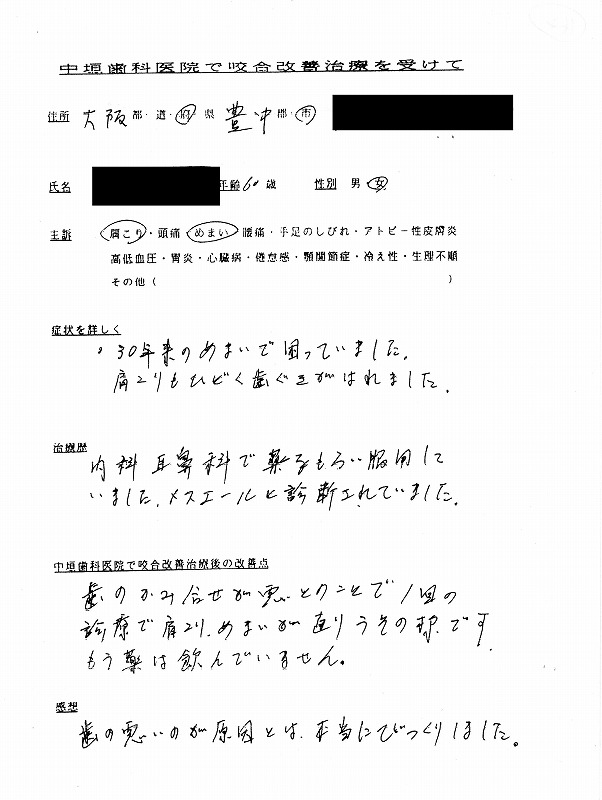 中垣歯科医院で咬合改善治療を受けて
住所 大阪 都・道・府・県 豊中 郡・市
氏名 年齢 60 歳 性別 男・女
主訴 肩こり・頭痛・めまい・腰痛・手足のしびれ・アトピー性皮膚炎
高低血圧・胃炎・心臓病・倦怠感・顎関節症・冷え性・生理不順
その他（ ）
症状を詳しく
。30年来のめまいで困っていました。
肩こりもひどく歯ぐきがはれました。
治療歴
内科 耳鼻科で薬をもらい服用して
いました。メヌエールと診断されていました。
中垣歯科医院で咬合改善治療後の改善点
歯のかみ合せが悪いとのことで1回の
診療で肩こり、めまいが直りうその様です
もう薬は飲んでいません。
感想
歯の悪いのが原因とは、本当にびっくりしました。